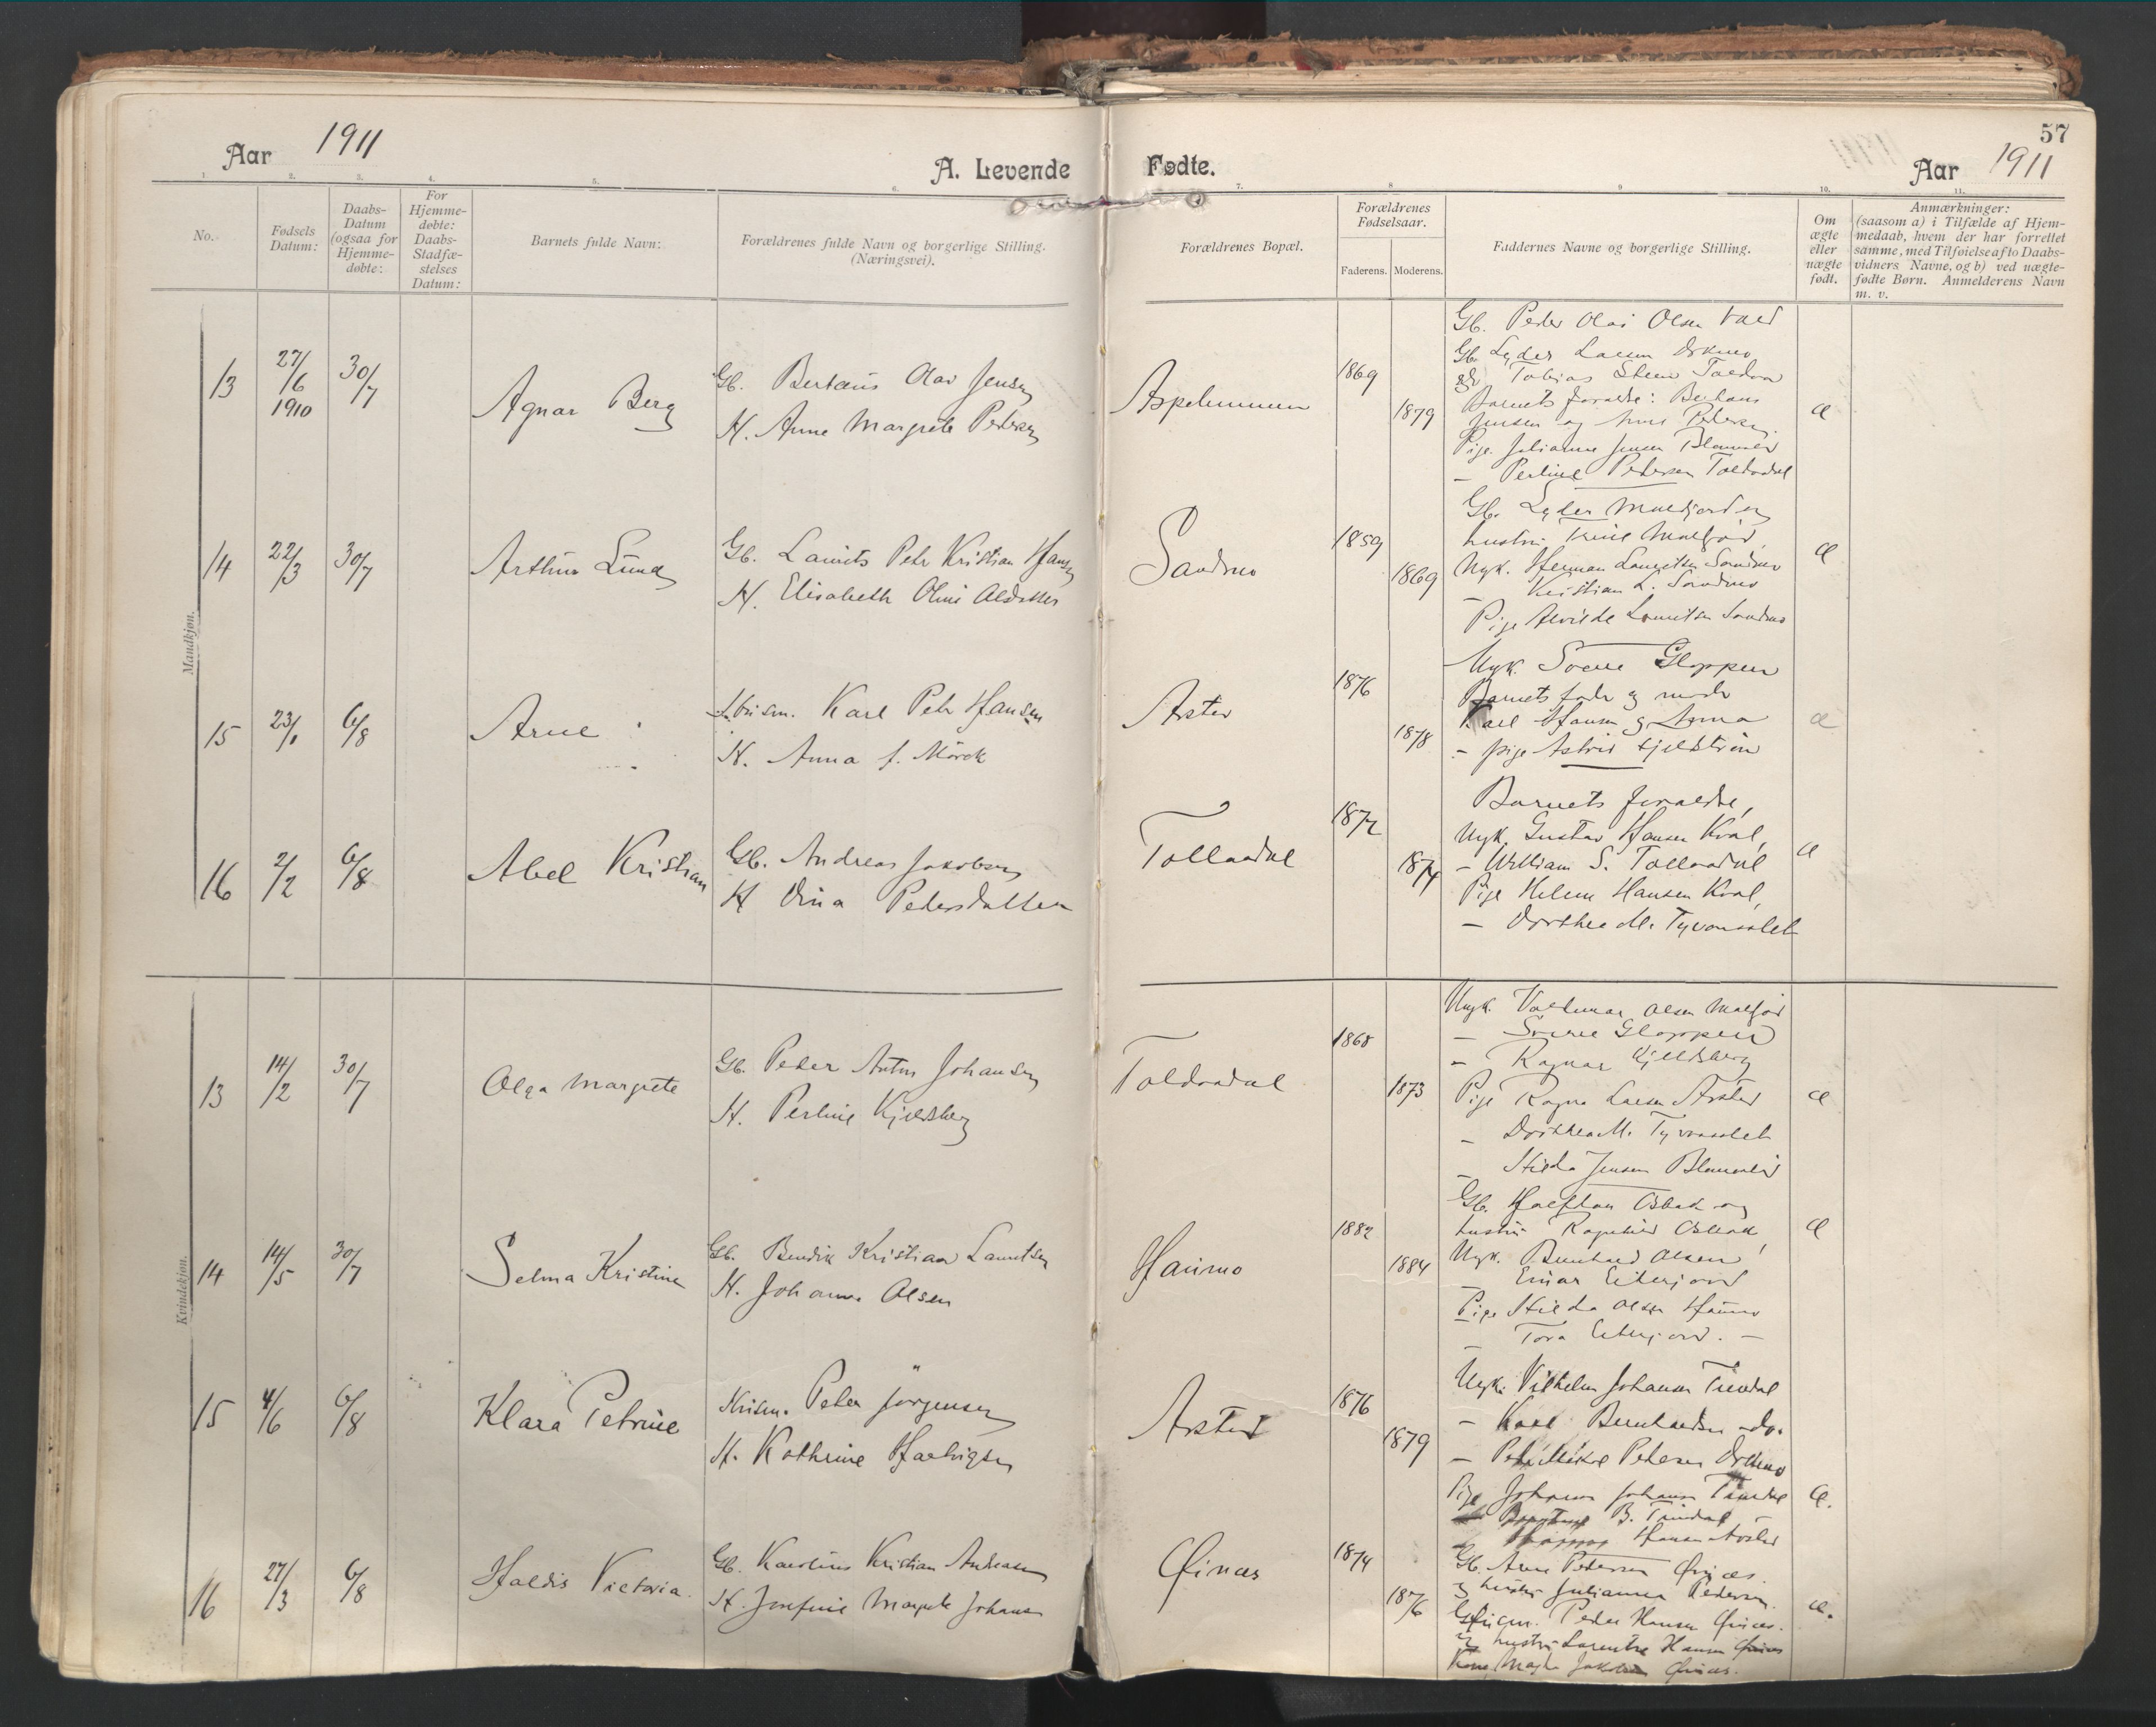 Aar 1911
A. Levende Fødte.
Aar 1911
57
1. 2. 3. 4. 5. 6. 7. 8 9 10. 11.
No.
Fødsels Datum:
Daabs-Datum (ogsaa for Hjemme-døbte:
For Hjemme-døbte: Daabs-Stadfæ-stelses Datum:
Barnets fulde Navn:
Forældrenes fulde Navn og borgerlige Stilling. (Næringsvei).
Forældrenes Bopæl.
Forældrenes Fødselsaar.
Faderens. Moderens.
Faddernes Navne og borgerlige Stilling.
Om ægte eller uægte født.
Anmærkninger: (saasom a) i Tilfælde af Hjem-medaab, hvem der har forrettet samme, med Tilføielse af to Daabs-vidners Navne, og b) ved uægte-fødte Børn. Anmelderens Navn m. v.
Mandkjøn.
13 27/6 1910 30/7 Agnar Berg
Gb. Bertæus Olav Jensen
H. Anne Margrete Petersen
1869 1879 æ
Gb. Peder Olai Olsen
Gb. Lyder Larsen
Tobias
Barnets forældre:
Jensen og Anne Petersen.
Pige Julianne Jensen
— Perline Petersen Toldaadal
14 22/3 30/7 Arthur Lund
Gb. Laurits Peter Kristian Hansen
H. Elisabeth Oline Olsdatter
Sandmo
1859 1869 æ
Gb. Lyder
hustru Trine
Ugk. Herman Lauritsen Sandmo
— Kristian L. Sandmo
Pige Alvilde Lauritsen Sandmo
15 23/1 6/8 Arne
Husm. Karl Peter Hansen
H. Anna f. Mörck
Arstad
1876 1878 æ
Ugk. Sverre Gloppen
Barnets fader og moder
Karl Hansen og Anna
— pige Astrid
16 2/2 6/8 Abel Kristian
Gb. Andreas Jakobsen
H Dina Pedersdatter
Tollaadal
1872 1874 æ
Barnets forældre,
Ugk. Gustav Hansen Kval,
— William S. Tollaadal
Pige Helene Hansen Kval,
— Dorthea M.
Kvindekjøn.
13 14/2 30/7 Olga Margrete
Gb. Peder Anton Johansen
H. Perline Kjeldsberg
Toldaadal
1868 1873 æ
Ugk. Valdemar Olsen
— Sverre Gloppen
— Ragnar Kjeldsberg
Pige Ragna Larsen Arstad
— Dorthea M.
— Hilda Jensen
14 14/5 30/7 Selma Kristine
Gb. Bendik Kristian Lauritsen
H. Johanna Olsen
Haumo
1882 1884 æ
Gb. Halfdan Osbak og
hustru Ragnhild Osbak,
Ugk. Bernhard Olsen
— Einar Eiterjord
Pige Hilda Olsen Haumo
— Tora Eiterjord. —
15 4/6 6/8 Klara Petrine
Husm. Peder Jörgensen
H. Kathrine Hartvigsen
Arstad
1876 1879 æ.
Ugk. Vilhelm Johansen Tverdal
— Karl Bernhardsen — do.
— Peter Mikal Petersen
Pige Johanna Johansen
B.
Hansen Arstad
16 27/3 6/8 Haldis Victoria.
Gb. Karolius Kristian Andreasen
H. Josefine Margrete Johansen
Øinæs
1874 1876 æ.
Gb. Arne Petersen Øinæs.
og hustru Julianna Pedersen.
Peder Hansen Øinæs.
og hustru Lorentse Hansen Øinæs
Jakobsen Øinæs.